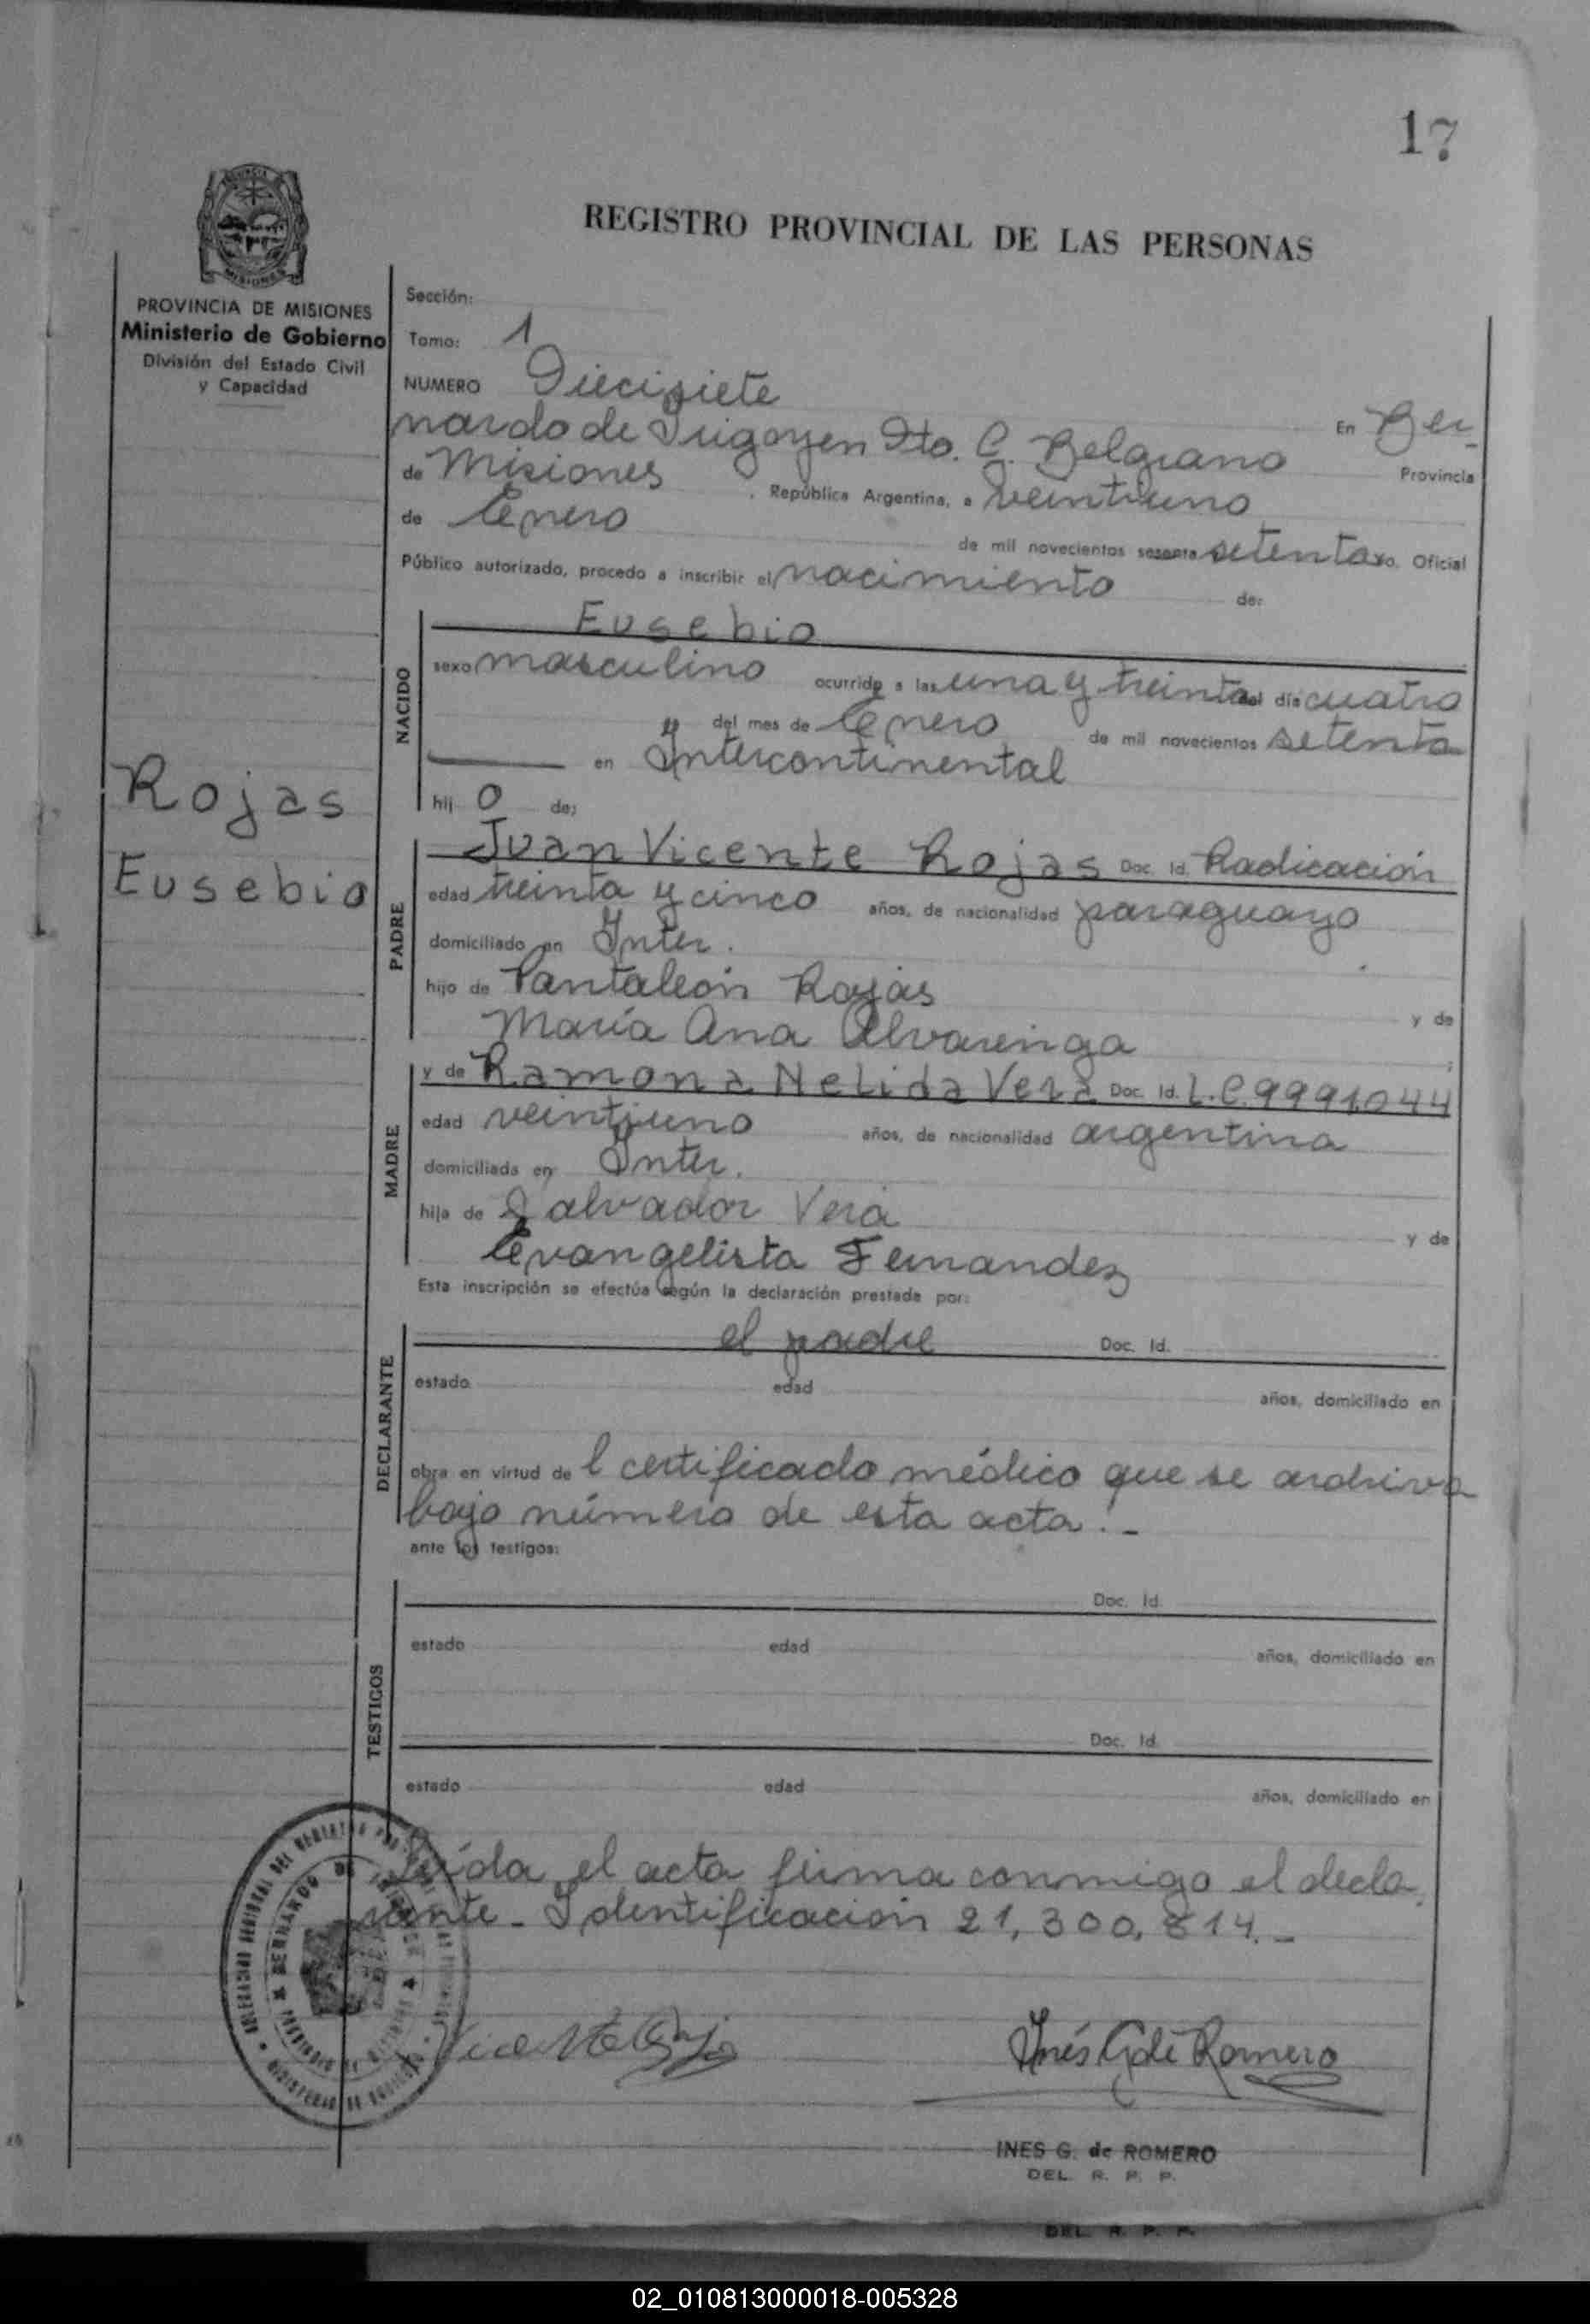 17
REGISTRO PROVINCIAL DE LAS PERSONAS
PROVINCIA DE MISIONES
Ministerio de Gobierno
División del Estado Civil
y Capacidad
Sección:
Tomo: 1
NUMERO Diecisiete
En Ber
nardo de Irigoyen Dto. G. Belgrano Provincia
de Misiones, República Argentina, a veintiuno
de Enero de mil novecientos sesenta setenta yo. Oficial
Público autorizado, procedo a inscribir el nacimiento de:
Rojas
Eusebio
NACIDO
Eusebio
sexo masculino ocurrido a las una y treinta del día cuatro
del mes de Enero de mil novecientos setenta
en Intercontinental
hij o de:
PADRE
Juan Vicente Rojas Doc. Id. Radicación
edad treinta y cinco años, de nacionalidad paraguayo
domiciliado en Inter.
hijo de Pantaleón Rojas y de
María Ana Alvarenga ;
MADRE
y de Ramona Nelida Vera Doc. Id. L.C. 9991.044
edad veintiuno años, de nacionalidad argentina
domiciliada en Inter.
hija de Salvador Vera y de
Evangelista Fernandez
Esta inscripción se efectúa según la declaración prestada por:
DECLARANTE
el padre Doc. Id.
estado edad años, domiciliado en
obra en virtud de l certificado médico que se archiva
bajo número de esta acta.-
ante los testigos:
TESTIGOS
Doc. Id.
estado edad años, domiciliado en
Doc. Id.
estado edad años, domiciliado en
Leída el acta firma conmigo el decla
rante - Identificación 21,300,814.-
BERNARDO DE IRIGOYEN
Inés G de Romero
INES G. de ROMERO
DEL. R. P. P.
DEL. R. P. P.
02_010813000018-005328